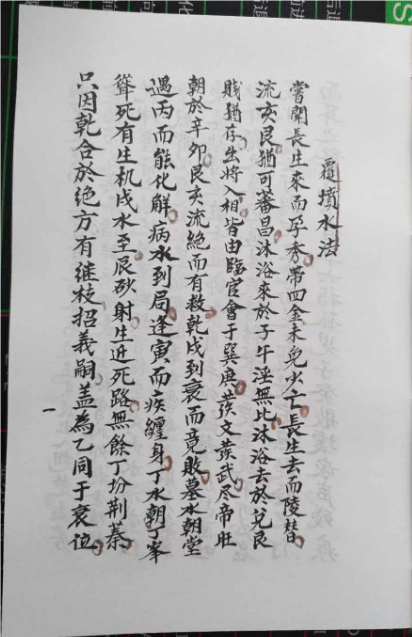 覆墳水法
嘗聞長生來而孕秀帶四金未免少亡長生去而陵替
流亥艮猶可蕃昌沐浴來於子午淫無比沐浴去於兌艮
賎猶存出將入相皆由臨官會于巽庚蔟文蔟武尽帝旺
朝於辛卯艮亥流絶而有救乾戌到衰而竟敗墓水朝堂
遇丙而能化解病水到局逢寅而疾纏身丁水朝丁峯
聳死有生机戌水至辰砂射生近死路無餘丁坋荆蓁
只因乾合於绝方有继枝招義嗣盖為乙同于衰位
一